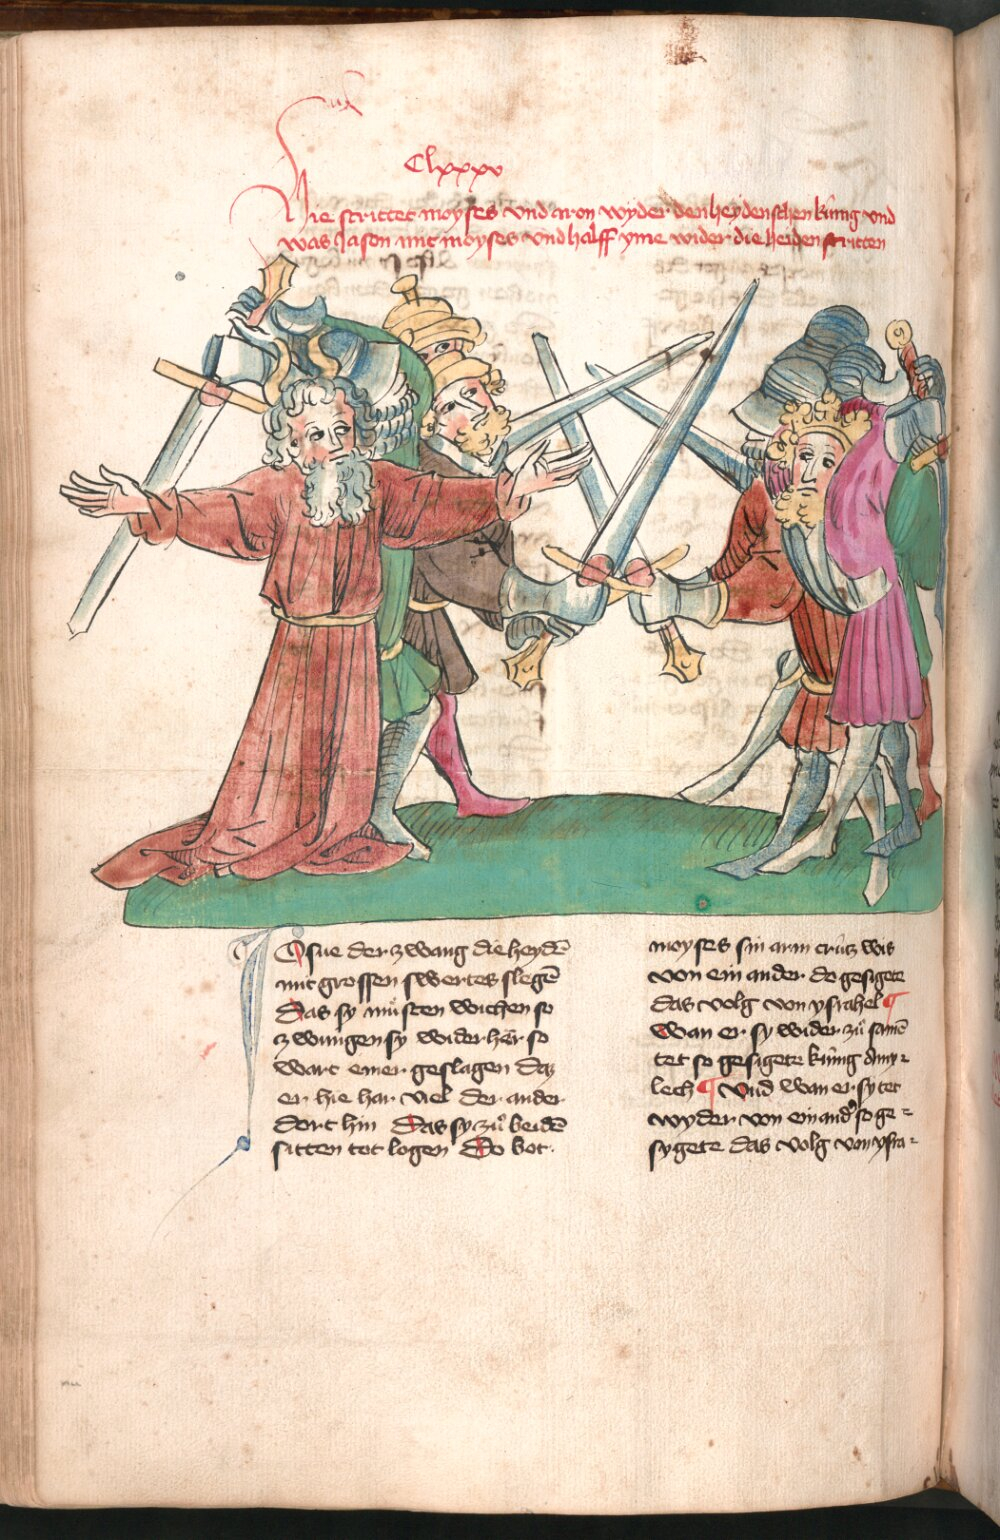 Clxxxv
Hie strittet moyses vnd aron wyder den heydenschen kúnig vnd
was Jason mit moyses vnd halff yme wider die heiden stritten
Josue der zwang die heydē
mit grossen swertes slegē
Das sy músten wichen so
zwungen sy wider hër so
wart einer geslagen daz
er hie har viel der ander
dort hin Das sy zů beidē
sitten tot logen Do bot
moyses sin arm crútz wis
von ein ander do gesigete
das volg von ysrahel
wan er sy wider zů samē
tet so gesigete kúnig Amy-
lech Vnd wan er sy tet
wyder von ein and so ge-
sygete das volg von ysra-